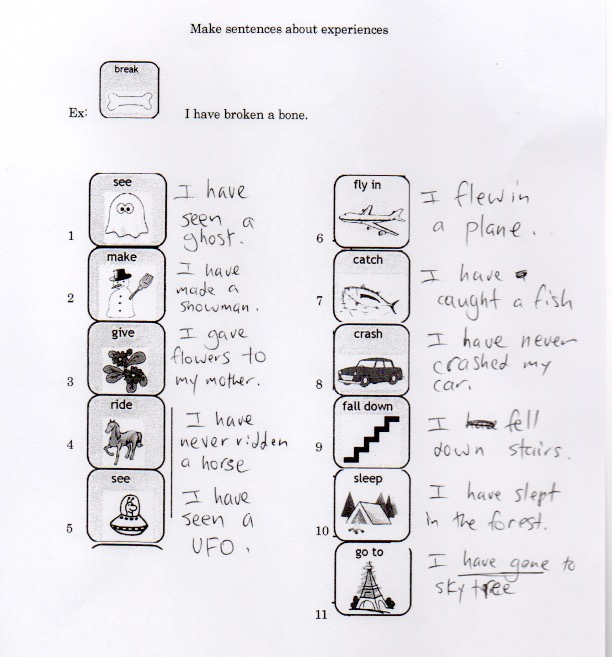 Make sentences about experiences
break
Ex: I have broken a bone.
1
see
I have
seen a
ghost.
2
make
I have
made a
snowman.
3
give
I gave
flowers to
my mother.
4
ride
I have
never ridden
a horse
5
see
I have
seen a
UFO.
6
fly in
I flew in
a plane.
7
catch
I have
caught a fish
8
crash
I have never
crashed my
car.
9
fall down
I have fell
down stairs.
10
sleep
I have slept
in the forest.
11
go to
I have gone to
sky tree